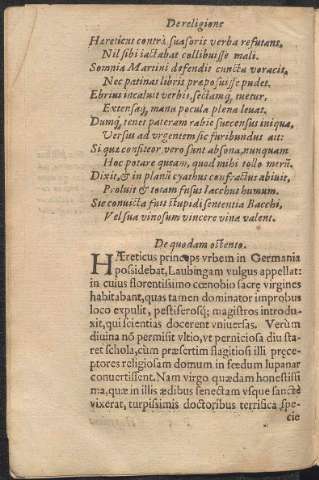 De religione
Hæreticus contrà suasoris verba refutans,
Nil sibi iactabat collibuisse mali.
Somnia Martini defendit cuncta voracis,
Nec patinas libris præposuisse pudet.
Ebrius incaluit verbis, sectamq; tuetur,
Extensaq; manu pocula plena leuat.
Dumq; tenet pateram rabie succensus iniqua,
Versus ad vrgentem sic furibundus ait:
Si qua consiteor vero sunt absona, nunquam
Hoc potare queam, quod mihi tollo merũ.
Dixit, & in planũ cyathus confractus abiuit,
Proluit & totam fusus Iacchus humum.
Sic conuicta fuit stupidi sententia Bacchi,
Vel sua vinosum vincere vina valent.
De quodam ostento.
HÆreticus princeps vrbem in Germania
possidebat, Laubingam vulgus appellat:
in cuius florentissimo cœnobio sacrę virgines
habitabant, quas tamen dominator improbus
loco expulit, pestiferosq; magistros introdu-
xit, qui scientias docerent vniuersas. Verùm
diuina nõ permisit vltio, vt perniciosa diu sta-
ret schola, cùm præsertim flagitiosi illi pręce-
ptores religiosam domum in fœdum lupanar
conuertissent. Nam virgo quædam honestissi
ma, quæ in illis ædibus senectam vsque sanctè
vixerat, turpissimis doctoribus terrifica spe-
cie